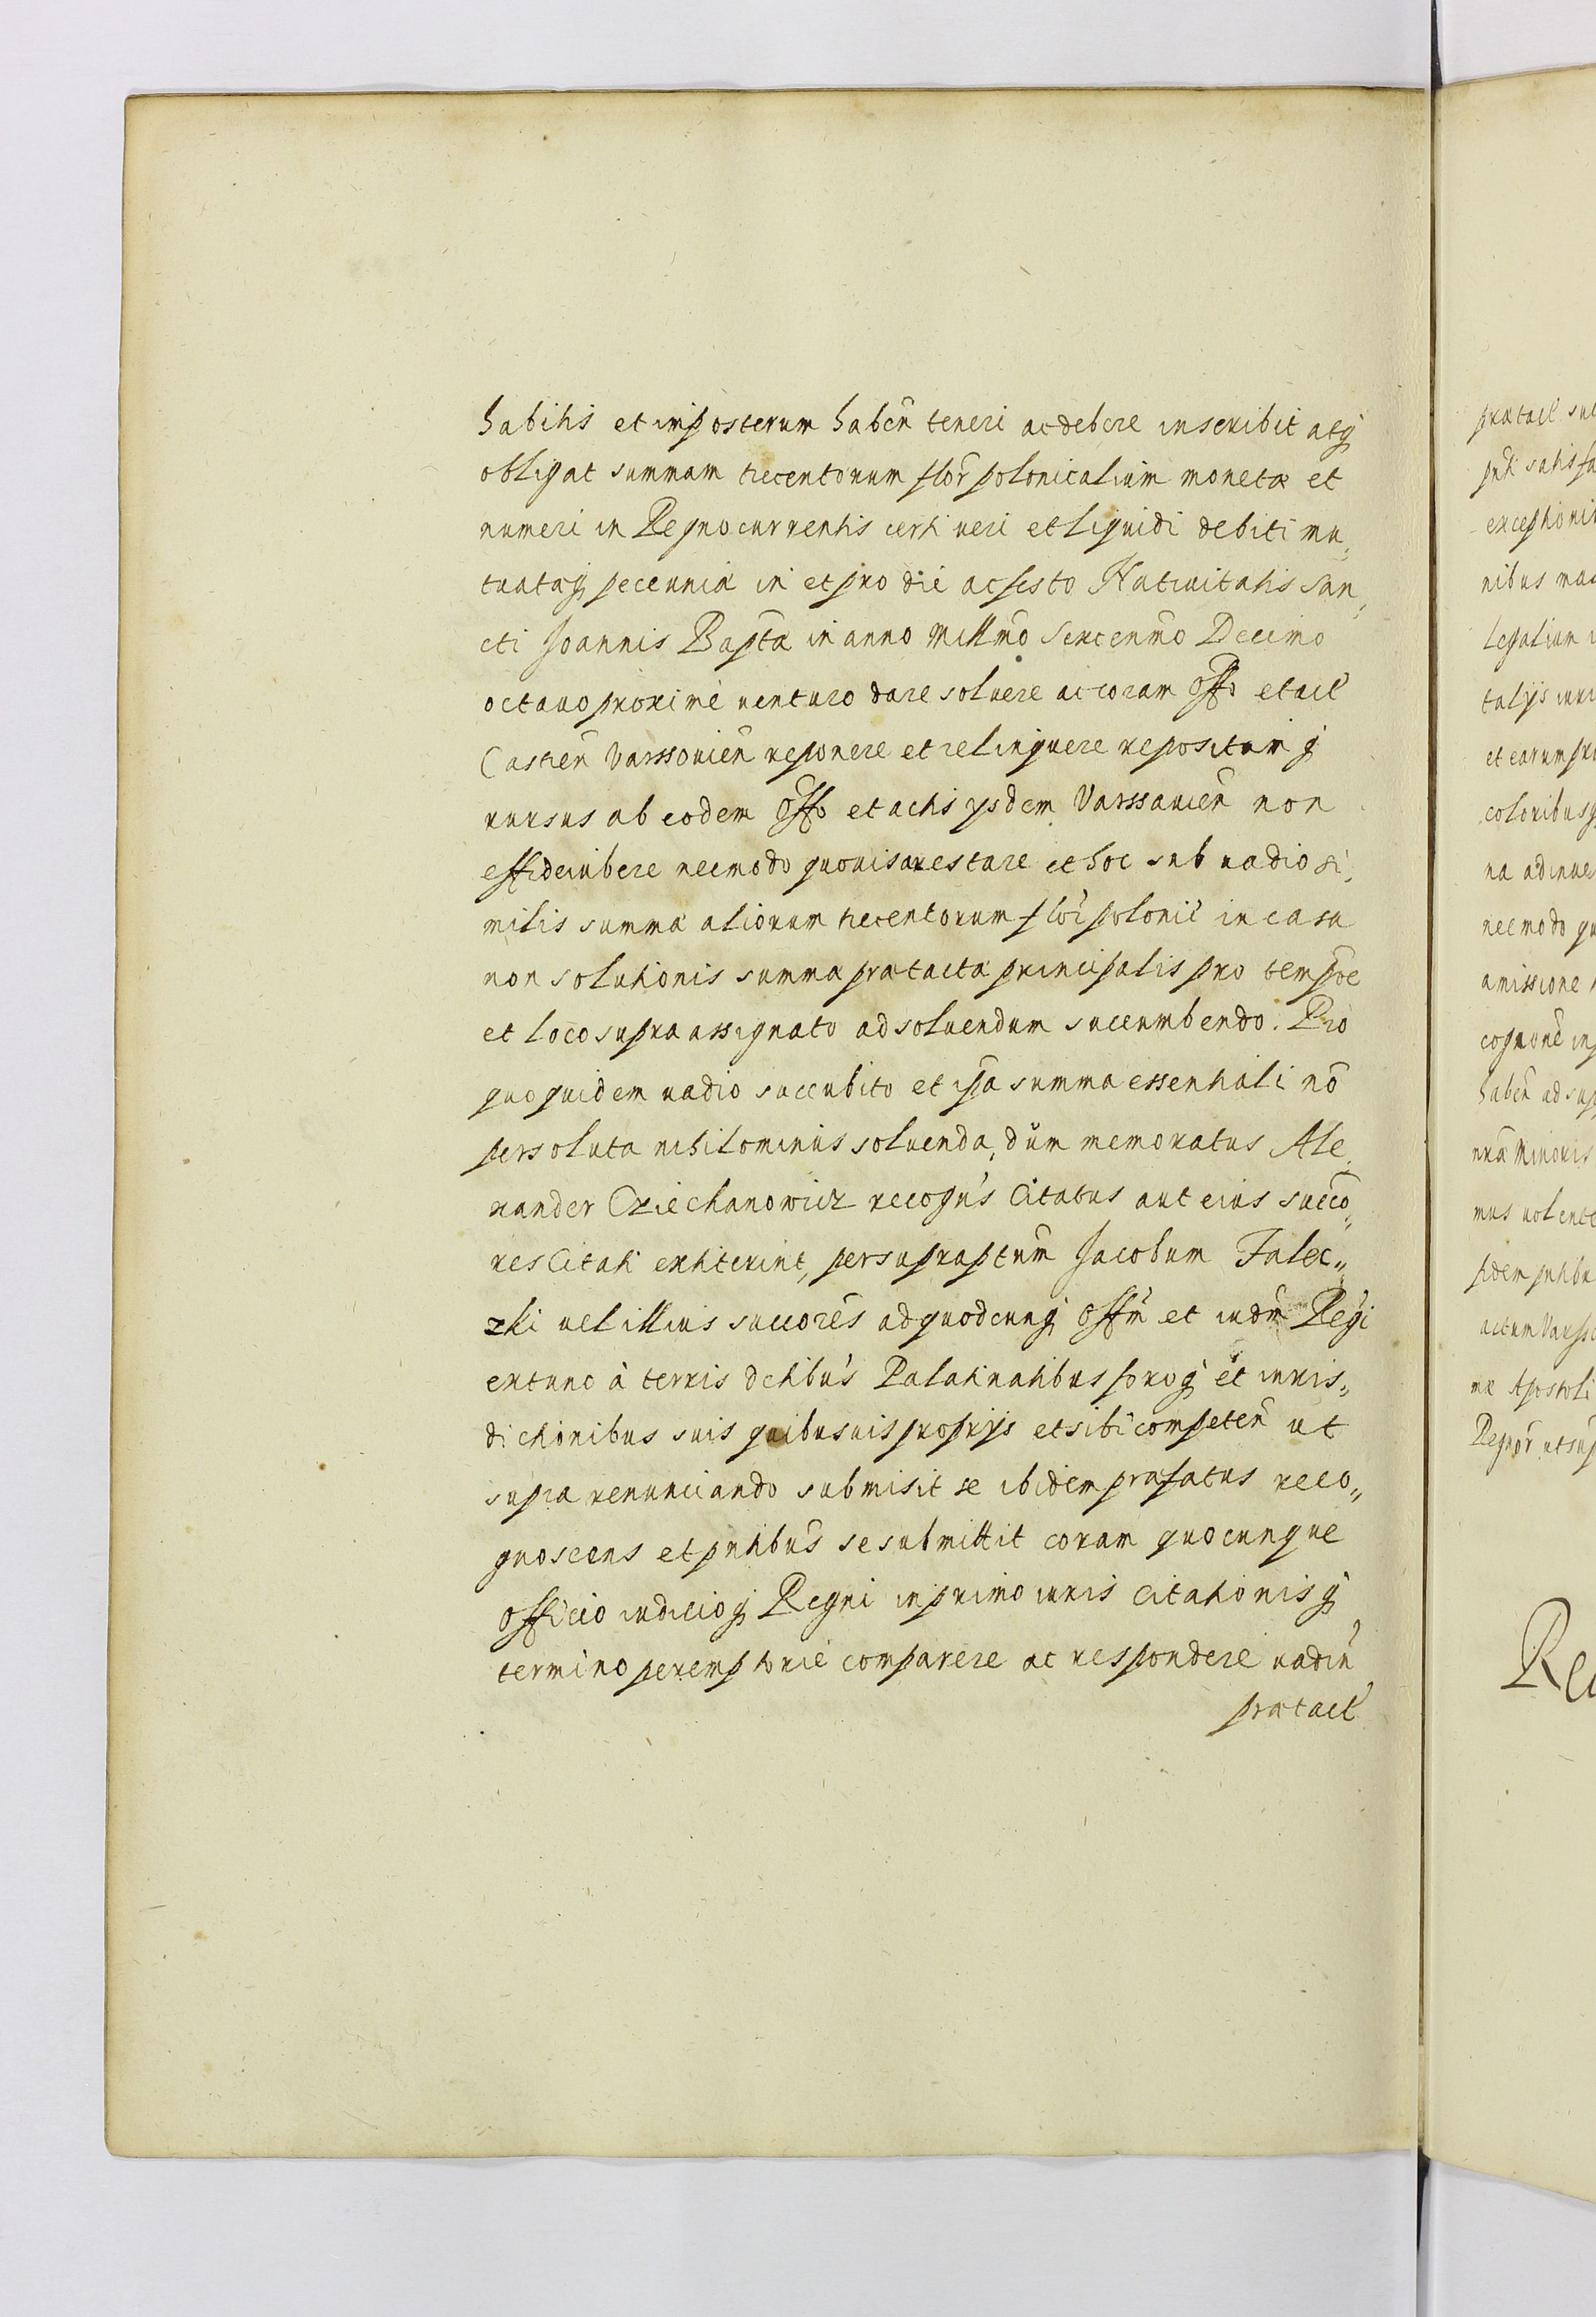 habitis et imposterum habeñ teneri ac debere inscribit atq̃
obligat summam trecentorum flor̃ polonicalium moneta et
numeri in Regno currentis certi ueri et liquidi debiti mu„
tuataq̃ pecunia in et pro die ac festo Natiuitatis San„
cti Joannis Bapt̃a in anno Mill̃mo Sexcenm̃o Decimo
octauo proximè uenturo dare soluere ac coram Offõ et act̃
Castreñ Varssouieñ reponere et relinquere repositamq̃
rursus ab eodem Offõ et actis ysdem Varssauieñ non
effidecubere necmodo quouis arestare et hoc sub uadio si„
milis summa aliorum trecentorum flor̃ polonic̃ in casu
non solutionis summa pratacta principalis pro temp̃oe
et loco supra assignato ad soluendum sucumbendo. Pro
quo quidem uadio succubito et ip̃a summa essentiali nõ
persoluta nihilominus soluenda, dum memoratus Ale„
xander Cziechanowicz recogñs Citatus aut eius succõ„
res Citati extiterint, per suprap̃tum Jacobum Falec„
zki uel illius succores ad quodcunq̃ Off̃m et iudm̃ Regi
extunc à terris dc̃tibus Palatinatibus foroq̃ et iuris„
dictionibus suis quibusuis proprijs et sibi competeñ ut
supra renunciando submisit se ibidem prafatus reco„
gnoscens et pñtibus se submittit coram quocunque
Officio iudicioq̃ Regni in primo iuris Citationisq̃
termino peremptorie comparere ac respondere uadiñ
pratact̃
pratact̃
exceptioni
Legalium
et earum
coloribusq̃
na adinue
necmodo
amissione
mus uolente
actum Varsso
ma Apostoli